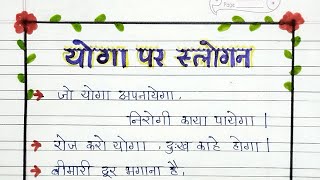 योगा पर स्लोगन
जो योगा अपनायेगा,
निरोगी काया पायेगा |
रोज करो योगा, दुःख काहे होगा |
बीमारी दूर भगाना है,